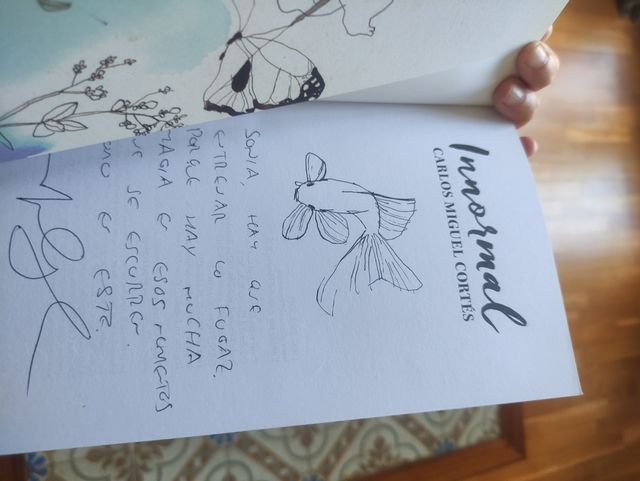 Innormal
CARLOS MIGUEL CORTÉS
SONIA, HAY QUE
ENTRENAR LO FUGAZ.
PORQUE HAY MUCHA
MAGIA EN ESOS MOMENTOS
QUE SE ESCURREN.
COMO EN ESTE.